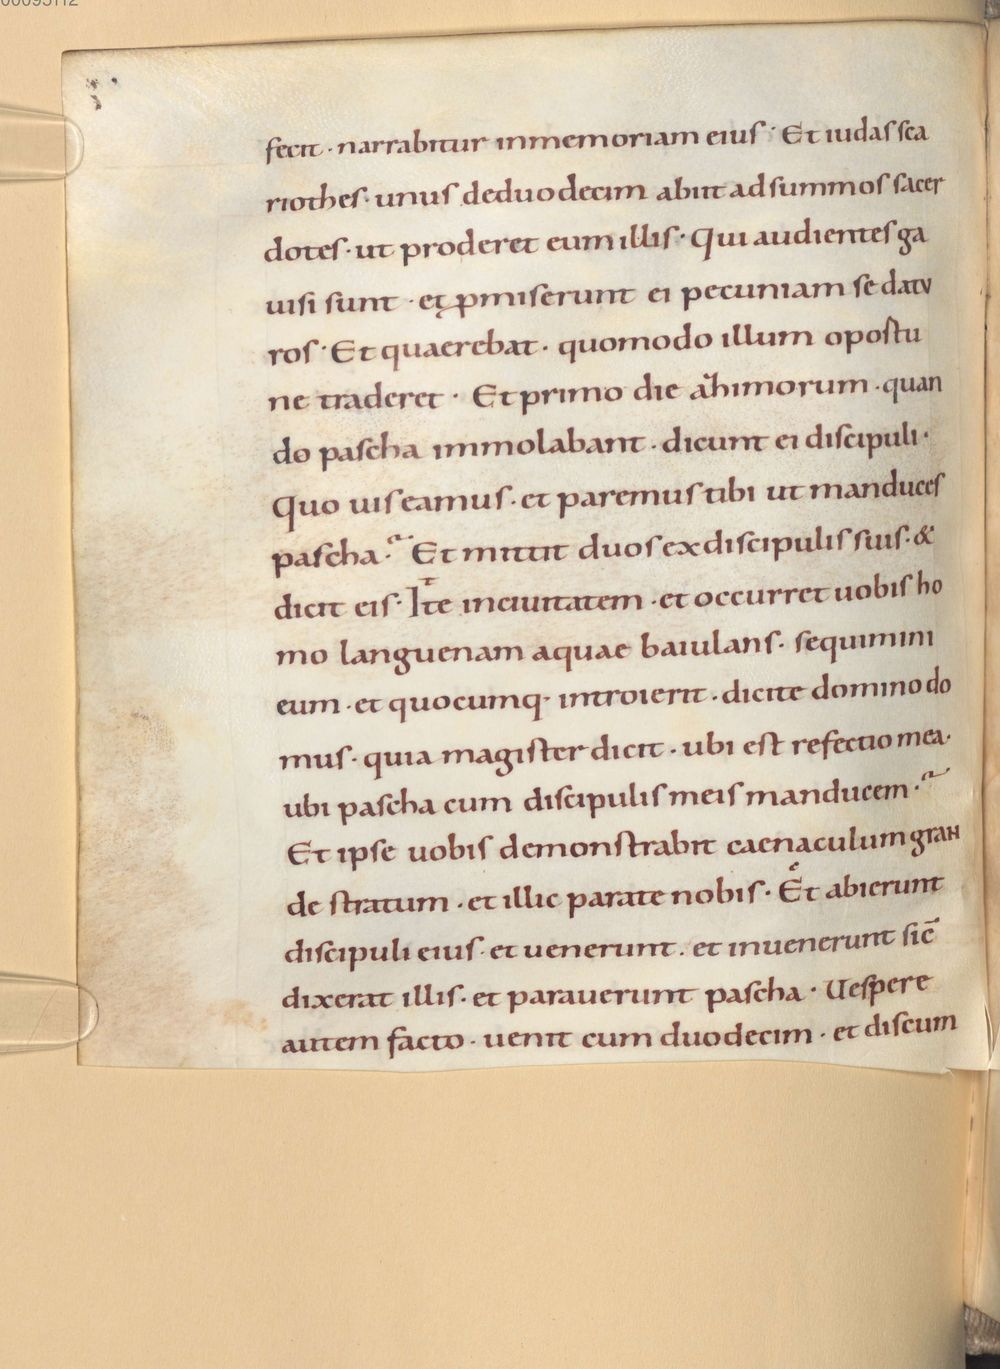 fecit · narrabitur inmemoriam eius · Et iudas sca
riothes · unus deduodecim abiit ad summos sacer
dotes · ut proderet eum illis · Qui audientes ga
uisi sunt · et ꝓmiserunt ei pecuniam se datu
ros · Et quaerebat · quomodo illum opostu
ne traderet · Et primo die ahimorum · quan
do pascha immolabant · dicunt ei discipuli ·
Quo uis eamus · et paremus tibi ut manduces
pascha · Et mittit duos ex discipulis suis · &
dicit eis · Ite inciuitatem · et occurret uobis ho
mo languenam aquae baiulans · sequimini
eum · et quocumq· introierit · dicite domino do
mus · quia magister dicit · ubi est refectio mea ·
ubi pascha cum discipulis meis manducem ·
Et ipse uobis demonstrabit caenaculum gran
de stratum · et illic parate nobis · Et abierunt
discipuli eius · et uenerunt · et inuenerunt sic̄
dixerat illis · et parauerunt pascha · Uespere
autem facto · uenit cum duodecim · et discum